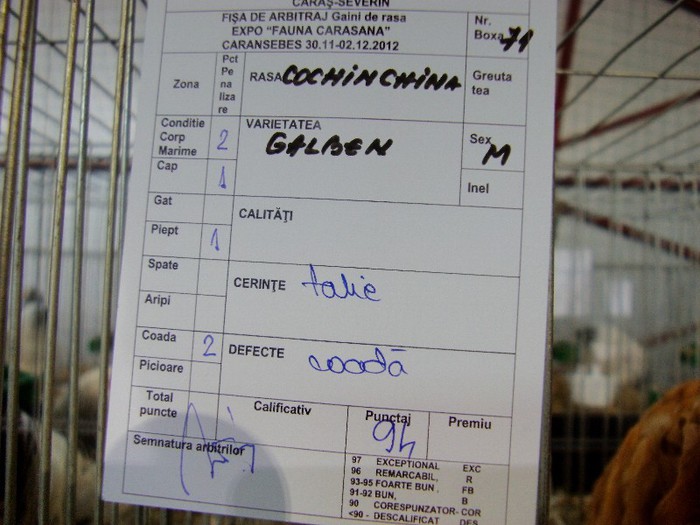 CARAȘ-SEVERIN
FIȘA DE ARBITRAJ Gaini de rasa
EXPO "FAUNA CARASANA"
CARANSEBES 30.11-02.12.2012
Nr.
Boxa 71
Zona
Pct
Pe
na
liza
re
RASA COCHINCHINA
Greuta
tea
Conditie
Corp
Marime 2
VARIETATEA
GALBEN
Sex
M
Cap 1
Inel
Gat
CALITĂŢI
Piept 1
Spate
CERINŢE talie
Aripi
Coada 2
DEFECTE coadă
Picioare
Total
puncte
Calificativ
Punctaj
94
Premiu
Semnatura arbitrilor
97 EXCEPTIONAL EXC
96 REMARCABIL, R
93-95 FOARTE BUN, FB
91-92 BUN, B
90 CORESPUNZATOR-COR
<90 - DESCALIFICAT DES